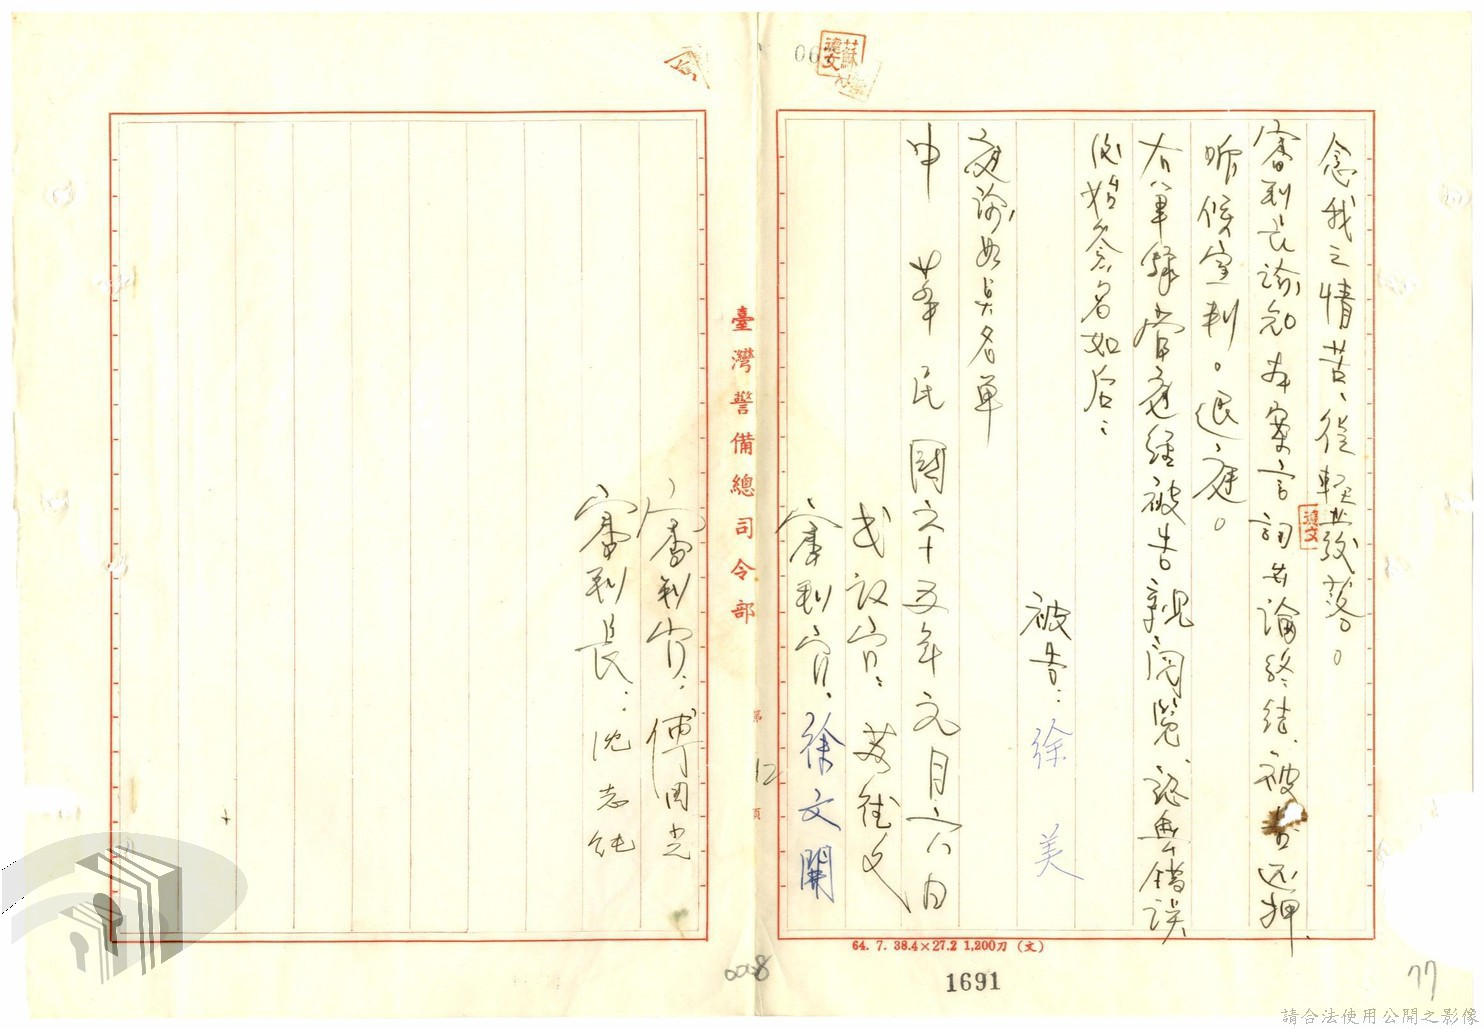 念我之情苦、從輕發落。
審判長諭知本案言詞辯論終結、被告还押
听候宣判。退庭。
右筆錄當庭經被告親閱覽認無錯誤
後始簽名如后：
被告：徐美
庭諭如具名單
中華民國六十五年元月六日
書記官：蘇德文
審判官：徐文開
審判官：傅國光
審判長：沈志純
臺灣警備總司令部
第12頁
64. 7. 38.4×27.2 1,200刀（文）
1691
0008
77
蘇德文
德文
請合法使用公開之影像